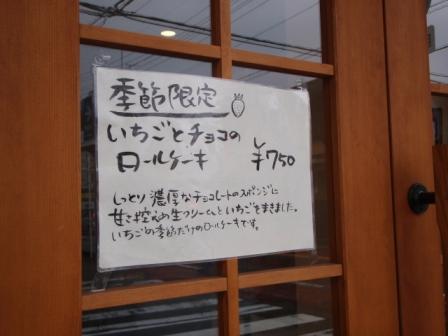 季節限定
いちごとチョコの
ロールケーキ ¥750
しっとり濃厚なチョコレートのスポンジに
甘さ控えめ生クリームといちごをまきました。
いちごの季節だけのロールケーキです。